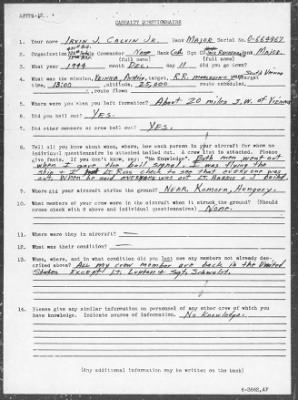 CASUALTY QUESTIONNAIRE
1. Your name Irvin J. Calvin Jr. Rank Major Serial No.
2. Organization Commander Rank Col
3. What year 1944 month Dec. day 11 did you go down?
4. What was the mission, target,
time, 13:00, altitude, 25,000 route scheduled,
, route flown
5. Where were you when you left formation? About 20 miles S.W. of Vienna
6. Did you bail out? YES.
7. Did other members of crew bail out? YES.
8. Tell all you know about when, where, how each person in your aircraft for whom no
individual questionnaire is attached bailed out. A crew list is attached. Please
give facts. If you don't know, say: "No Knowledge". Both men went out
when I gave the bail signal. I was flying the
ship & Lt. Ross check to see that everyone was
out. When he said everyone was out Lt. & I bailed.
9. Where did your aircraft strike the ground? Near, Komorn, Hungary.
10. What members of your crew were in the aircraft when it struck the ground? (Should
cross check with 8 above and individual questionnaires) None.
11. Where were they in aircraft? —
12. What was their condition? —
13. When, where, and in what condition did you last see any members not already des-
cribed above? All my crew member are back in the United
States except Lt. Lupton & Sgt. Schwalst.
14. Please give any similar information on personnel of any other crew of which you
have knowledge. Indicate source of information. No Knowledge.
(Any additional information may be written on the back)
6-3862,AF